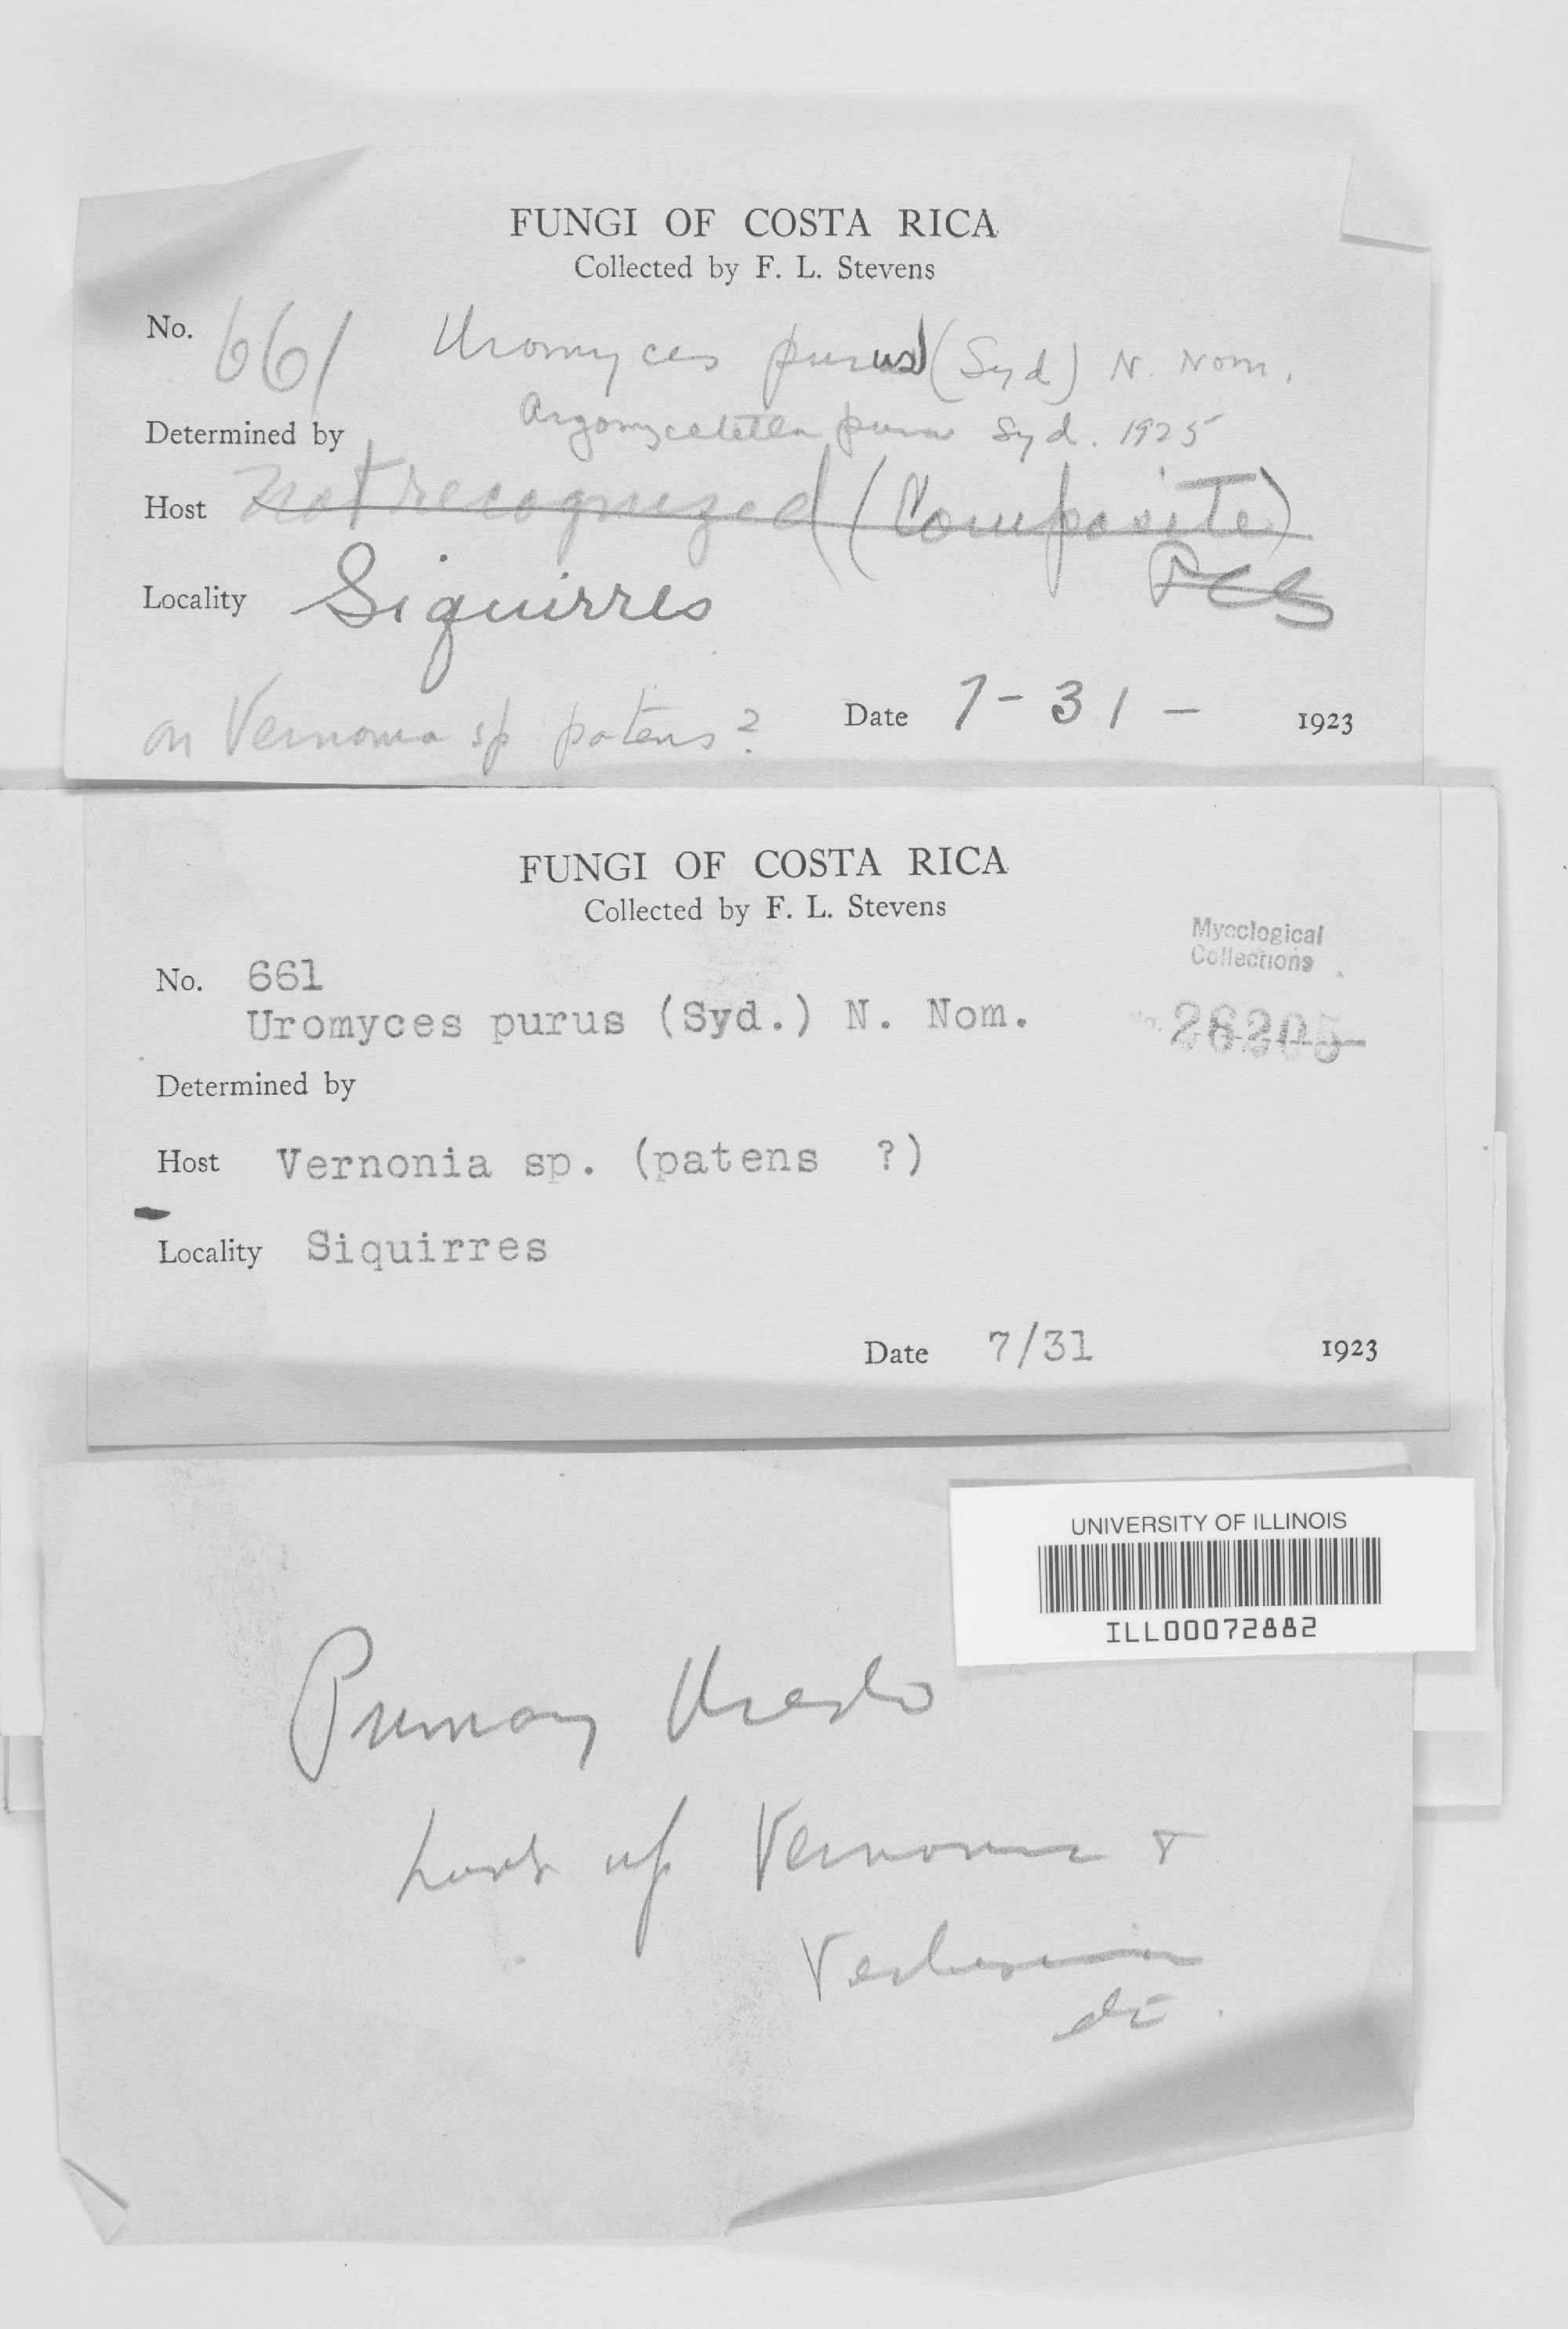 FUNGI OF COSTA RICA
Collected by F. L. Stevens
No. 661 Uromyces purus (Syd) N. Nom.
Argomycetella pura Syd. 1925
Determined by
Host Not recognized (Composite)
Locality Siquirres
on Vernonia sp patens?
Date 7-31- 1923
FUNGI OF COSTA RICA
Collected by F. L. Stevens
Mycological
Collections
No. 661
Uromyces purus (Syd.) N. Nom.
No. 26205
Determined by
Host Vernonia sp. (patens ?)
Locality Siquirres
Date 7/31 1923
UNIVERSITY OF ILLINOIS
ILL00072882
Primary Uredo
look up Vernonia &